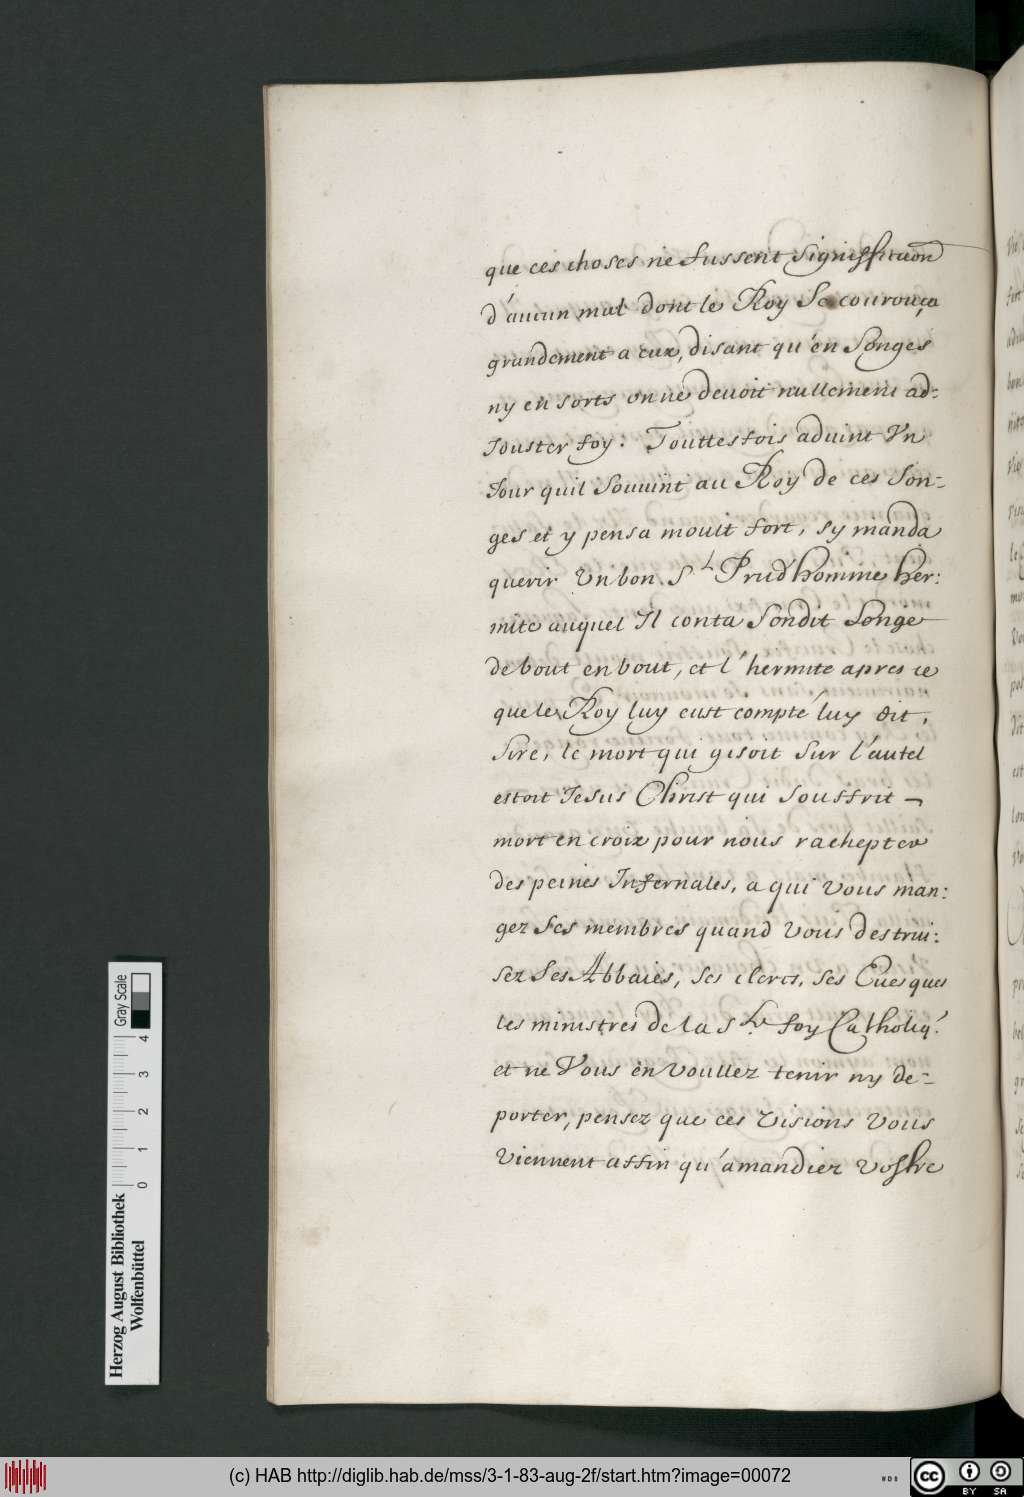 que ces choses ne fussent signiffication
d'aucun mal dont le Roy se courouça
grandement a eux, disant qu'en songes
ny en sorts on ne devoit nullement ad-
Jouster foy. Touttesfois advint Vn
Jour quil souvint au Roy de ces son-
ges et y pensa moult fort, sy manda
querir Vn bon St Prud'homme her:
mite auquel Il conta sondit songe
de bout en bout, et l'hermite apres ce
que le Roy luy eust compté luy dit,
Sire, le mort qui gisoit sur l'autel
estoit Jesus Christ qui souffrit
mort en croix pour nous rachepter
des peines Infernales, a qui vous man:
gez ses membres quand vous destrui:
sez ses Abbaies, ses clercs, ses Euesques
les ministres de la Ste foy Catholiq'
et ne Vous en voullez tenir ny de-
porter, pensez que ces visions vous
viennent affin qu'amandiez vostre
Gray Scale
0 1 2 3 4
Herzog August Bibliothek
Wolfenbüttel
(c) HAB http://diglib.hab.de/mss/3-1-83-aug-2f/start.htm?image=00072
WDB
cc BY SA